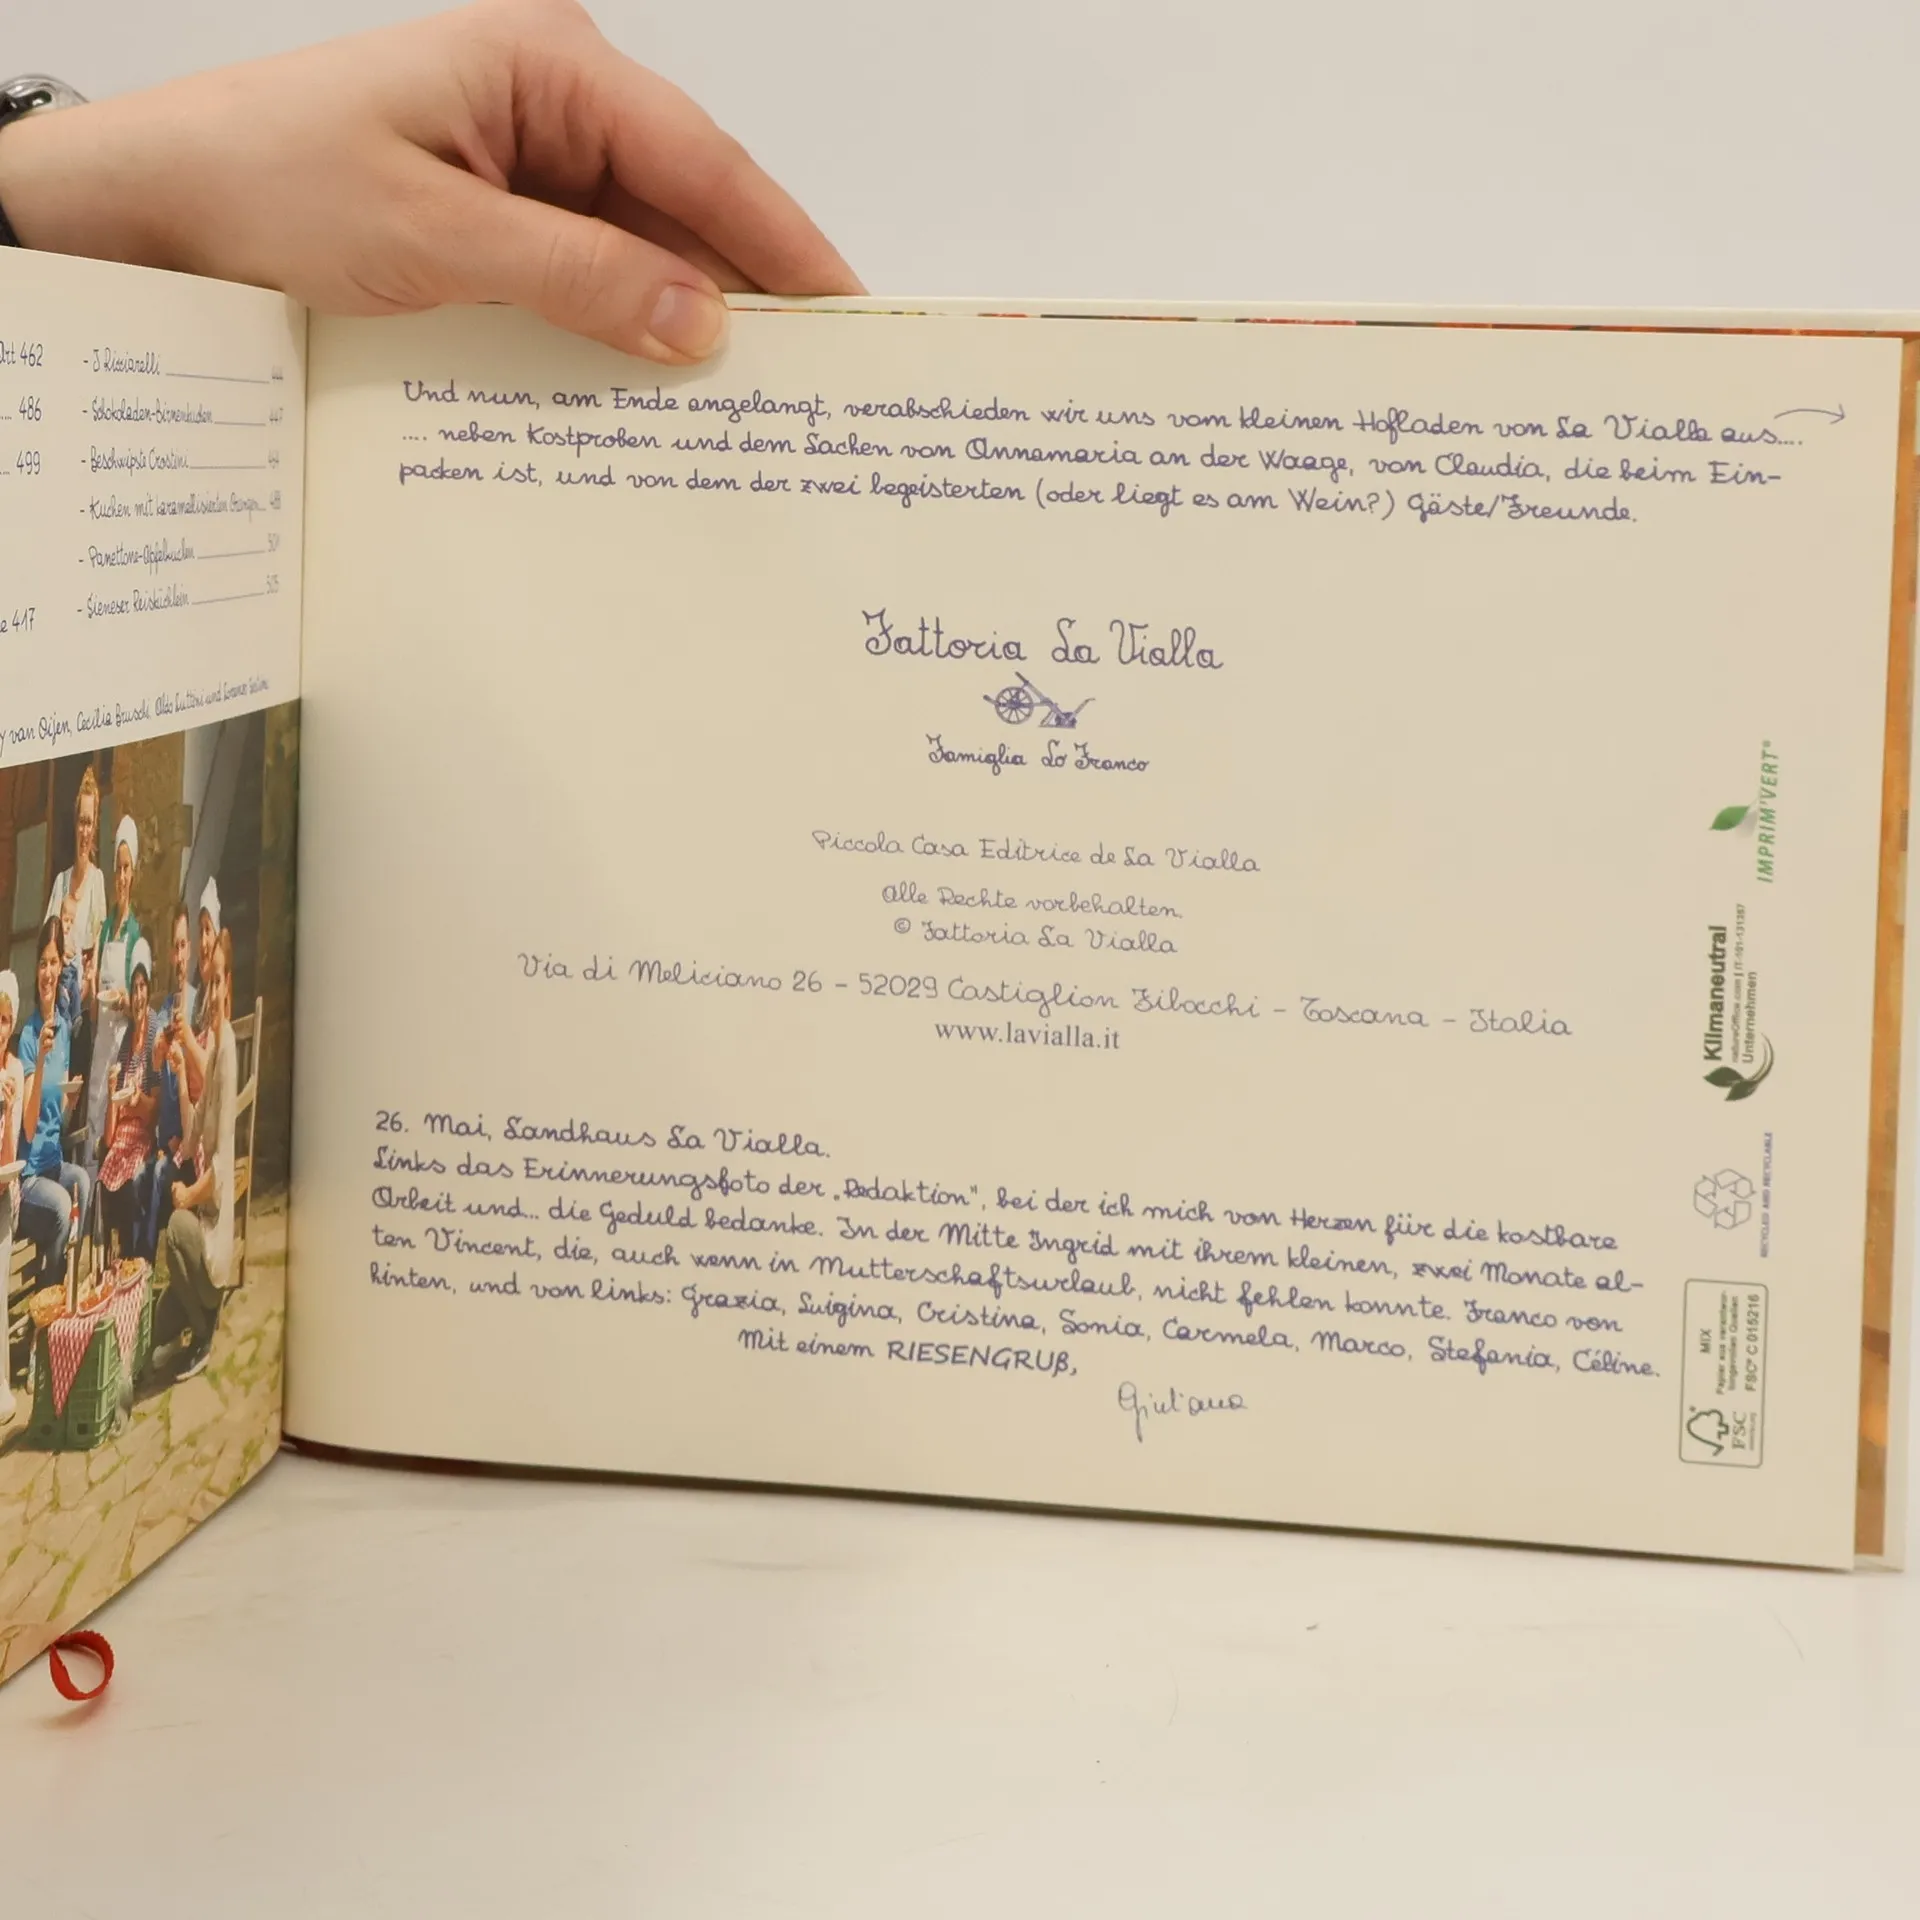 Art 462
.... 486
... 499
e 417
- I Ricciarelli
- Schokoladen-Birnenkuchen 447
- Beschwipste Crostini
- Kuchen mit karamellisierten Orangen
- Panettone-Apfelkuchen
- Sieneser Reisküchlein 505
y van Oijen, Cecilia Bruschi, Aldo und
Und nun, am Ende angelangt, verabschieden wir uns vom kleinen Hofladen von La Vialla aus....
.... neben Kostproben und dem Lachen von Annamaria an der Waage, von Claudia, die beim Ein-
packen ist, und von dem der zwei begeisterten (oder liegt es am Wein?) Gäste/Freunde.
Fattoria La Vialla
Famiglia Lo Franco
Piccola Casa Editrice de La Vialla
Alle Rechte vorbehalten.
© Fattoria La Vialla
Via di Meliciano 26 – 52029 Castiglion Fibocchi – Toscana – Italia
www.lavialla.it
26. Mai, Landhaus La Vialla.
Links das Erinnerungsfoto der „Redaktion", bei der ich mich von Herzen für die kostbare
Arbeit und... die Geduld bedanke. In der Mitte Ingrid mit ihrem kleinen, zwei Monate al-
ten Vincent, die, auch wenn in Mutterschaftsurlaub, nicht fehlen konnte. Franco von
hinten, und von links: Grazia, Luigina, Cristina, Sonia, Carmela, Marco, Stefania, Céline.
Mit einem RIESENGRUß,
Giuliana
IMPRIM'VERT®
Klimaneutral
natureOffice.com | IT-191-131357
Unternehmen
RECYCLED AND RECYCLABLE
MIX
Papier aus verantwor-
tungsvollen Quellen
FSC® C015216
FSC